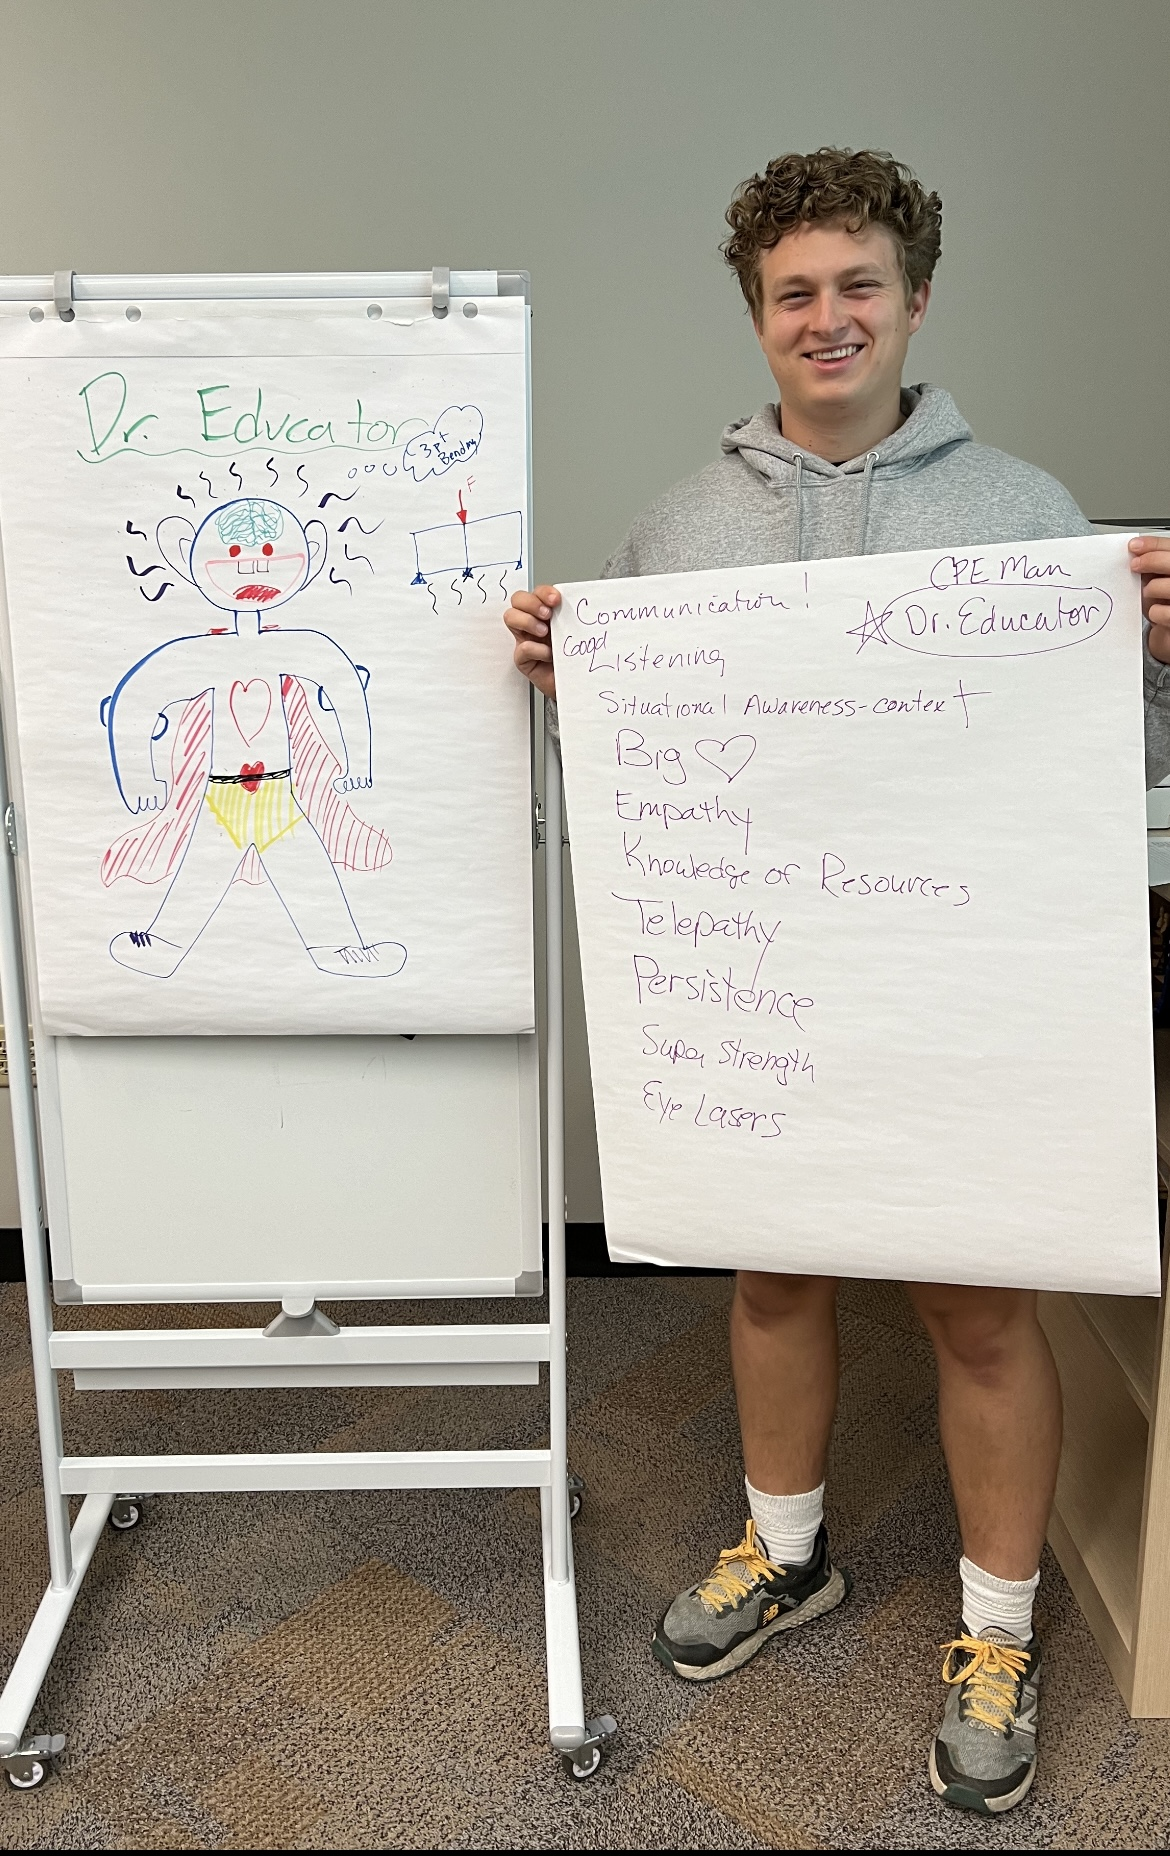 Dr. Educator
3 pt
Bending
F
CPE Man
Dr. Educator
Communication!
Good
Listening
Situational Awareness-context
Big ♡
Empathy
Knowledge of Resources
Telepathy
Persistence
Super Strength
Eye Lasers